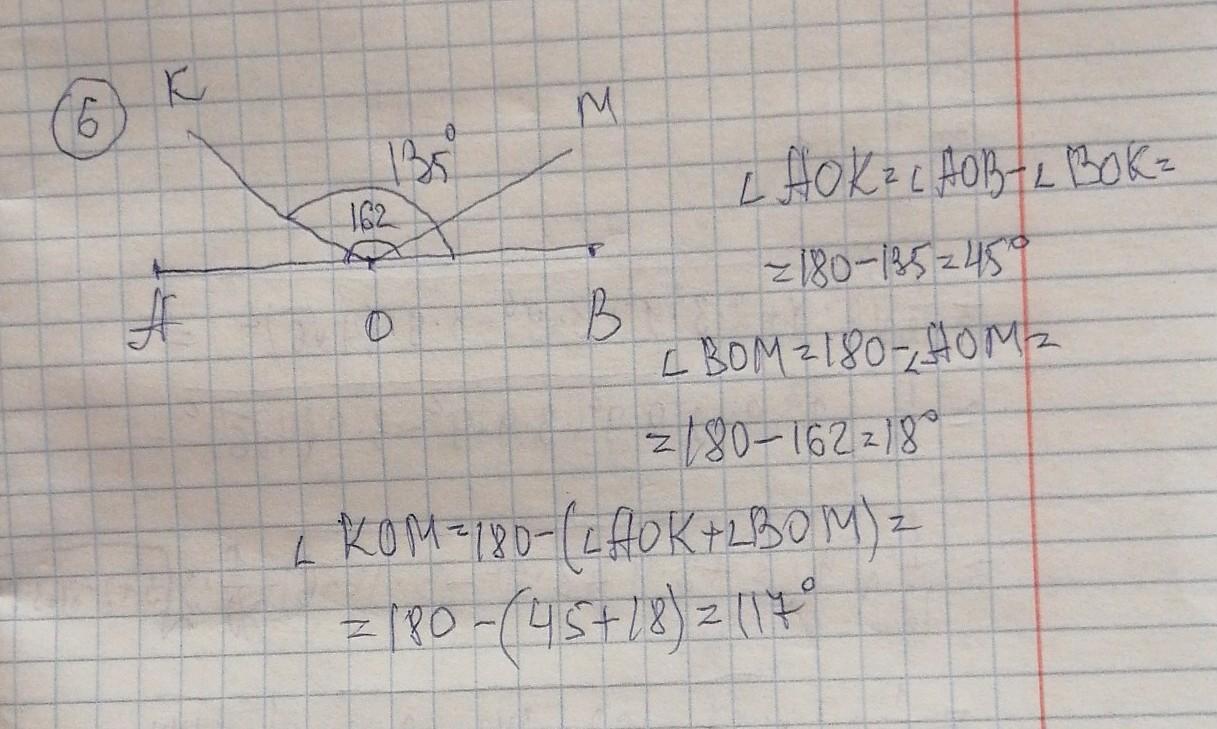 6
K
M
135°
162
A
O
B
∠AOK=∠AOB-∠BOK=
=180-135=45°
∠BOM=180-∠AOM=
=180-162=18°
∠KOM=180-(∠AOK+∠BOM)=
=180-(45+18)=117°